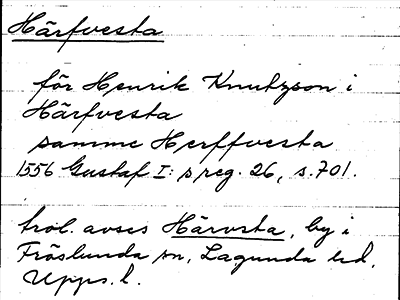 Härfvesta
för Henrik Knutzson i
Härfvesta
samme Herffvesta
1556 Gustaf I: s reg. 26, s. 701.
trol. avses Härvsta, by i
Fröslunda sn, Lagunda hd,
Upps. l.